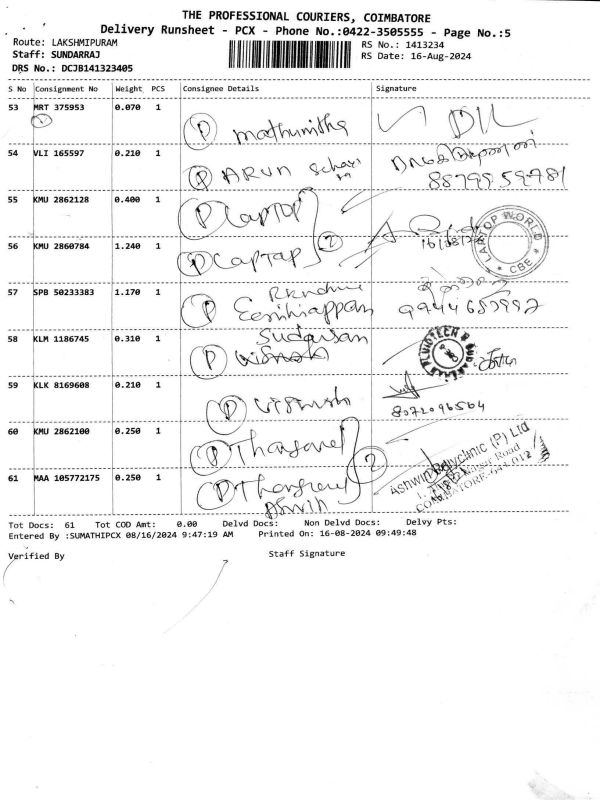 THE PROFESSIONAL COURIERS, COIMBATORE
Delivery Runsheet - PCX - Phone No.:0422-3505555 - Page No.:5
Route: LAKSHMIPURAM
Staff: SUNDARRAJ
DRS No.: DCJB141323405
RS No.: 1413234
RS Date: 16-Aug-2024
S No Consignment No Weight PCS Consignee Details Signature
53 MRT 375953 0.070 1 P mathumitha
54 VLI 165597 0.210 1 P ARUN
55 KMU 2862128 0.400 1 P LAPTOP
56 KMU 2860784 1.240 1 P LAPTAP 2
LAPTOP WORLD * CBE *
57 SPB 50233383 1.170 1 P
58 KLM 1186745 0.310 1 Sudarsan P
59 KLK 8169608 0.210 1 P
8072096564
60 KMU 2862100 0.250 1 P
61 MAA 105772175 0.250 1 P 2
Ashwin
Ashwin Polyclinic (P) Ltd
COIMBATORE-641 012
Tot Docs: 61 Tot COD Amt: 0.00 Delvd Docs: Non Delvd Docs: Delvy Pts:
Entered By :SUMATHIPCX 08/16/2024 9:47:19 AM Printed On: 16-08-2024 09:49:48
Verified By Staff Signature